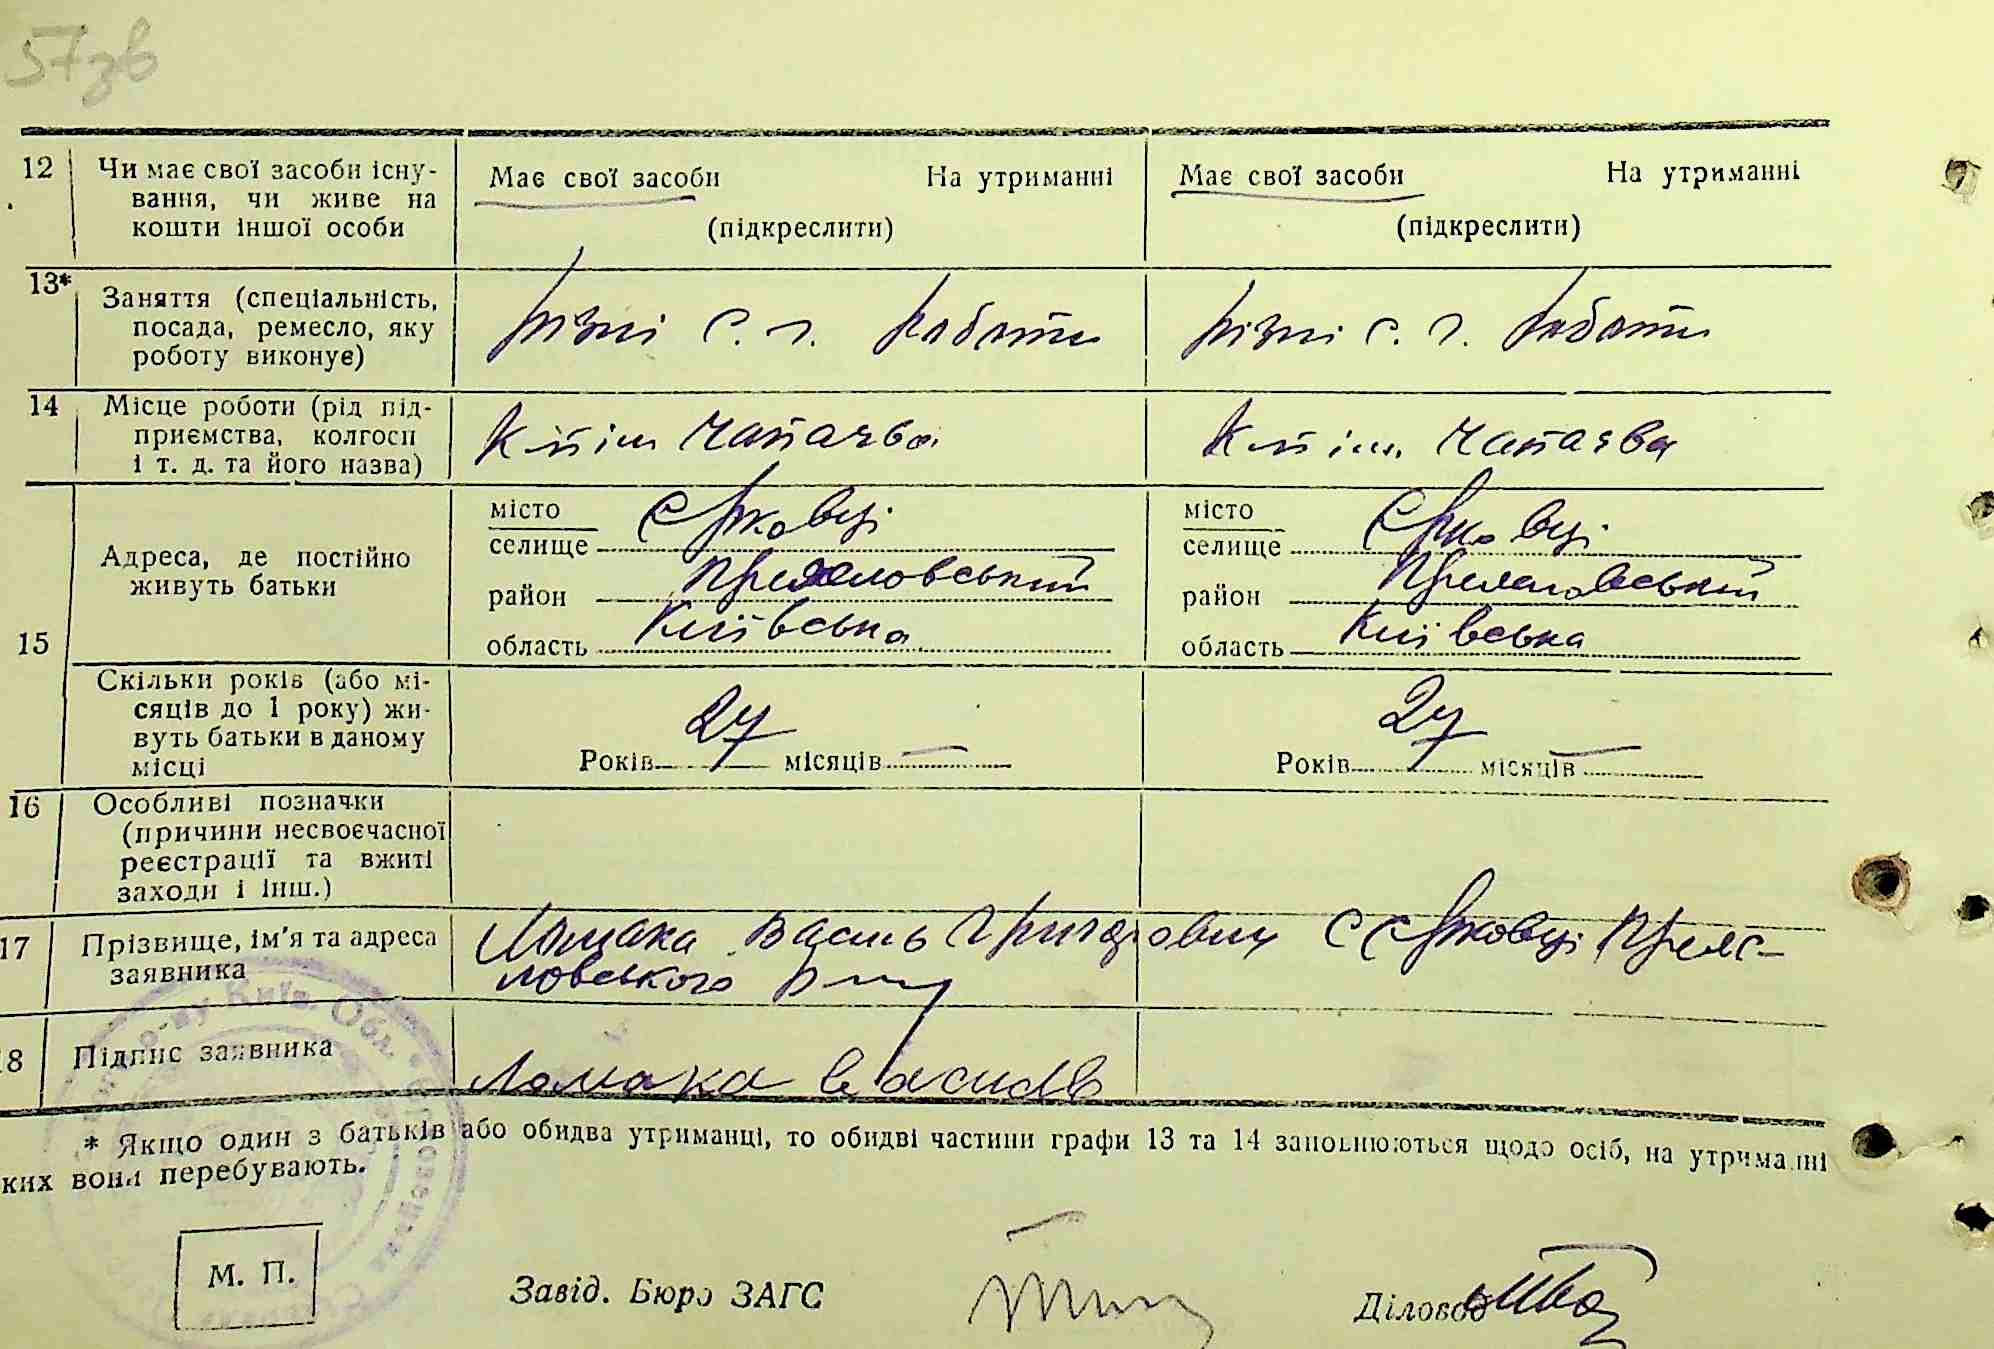 57зв
12 Чи має свої засоби існу-
вання, чи живе на
кошти іншої особи
Має свої засоби На утриманні
(підкреслити)
Має свої засоби На утриманні
(підкреслити)
13* Заняття (спеціальність,
посада, ремесло, яку
роботу виконує)
різні с. г. роботи
різні с. г. роботи
14 Місце роботи (рід під-
приємства, колгосп
і т. д. та його назва)
К-п ім Чапаєва
К-п ім. Чапаєва
15 Адреса, де постійно
живуть батьки
місто
селище Єрковці
район Переяславський
область Київська
місто
селище Єрковці
район Переяславський
область Київська
Скільки років (або мі-
сяців до 1 року) жи-
вуть батьки в даному
місці
Років 27 місяців —
Років 27 місяців —
16 Особливі позначки
(причини несвоєчасної
реєстрації та вжиті
заходи і інш.)
17 Прізвище, ім'я та адреса
заявника
Ломака Василь Григорович с Єрковці
ловського р-ну
18 Підпис заявника
Ломака Василь
* Якщо один з батьків або обидва утриманці, то обидві частини графи 13 та 14 заповнюються щодо осіб, на утриманні
ких вони перебувають.
М. П.
Завід. Бюро ЗАГС
Діловод